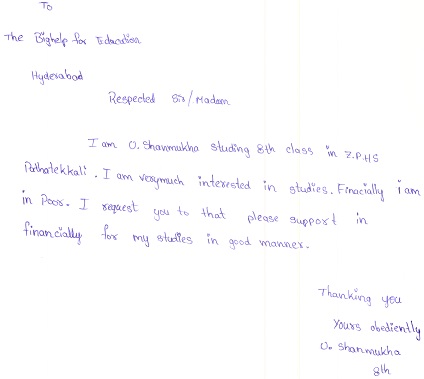 To
The Bighelp for Education
Hyderabad
Respected Sir/Madam
I am U. Shanmukha studing 8th class in Z.P.H.S
Pathatekkali. I am verymuch interested in studies. Finacially i am
in Poor. I request you to that please support in
financially for my studies in good manner.
Thanking you
Yours obediently
U. Shanmukha
8th